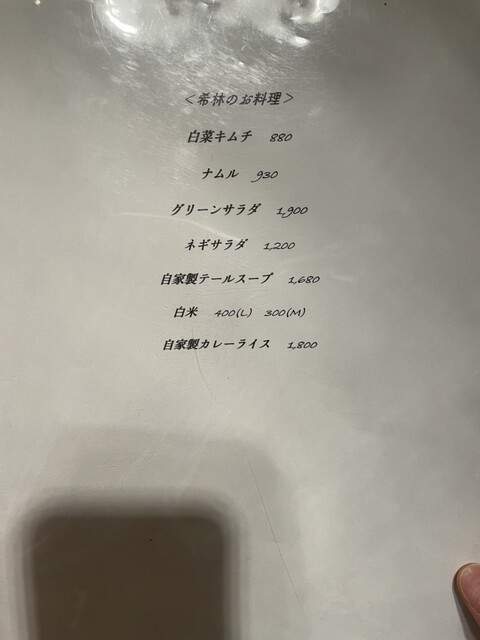 ＜希林のお料理＞
白菜キムチ 880
ナムル 930
グリーンサラダ 1,900
ネギサラダ 1,200
自家製テールスープ 1,680
白米 400(L) 300(M)
自家製カレーライス 1,800